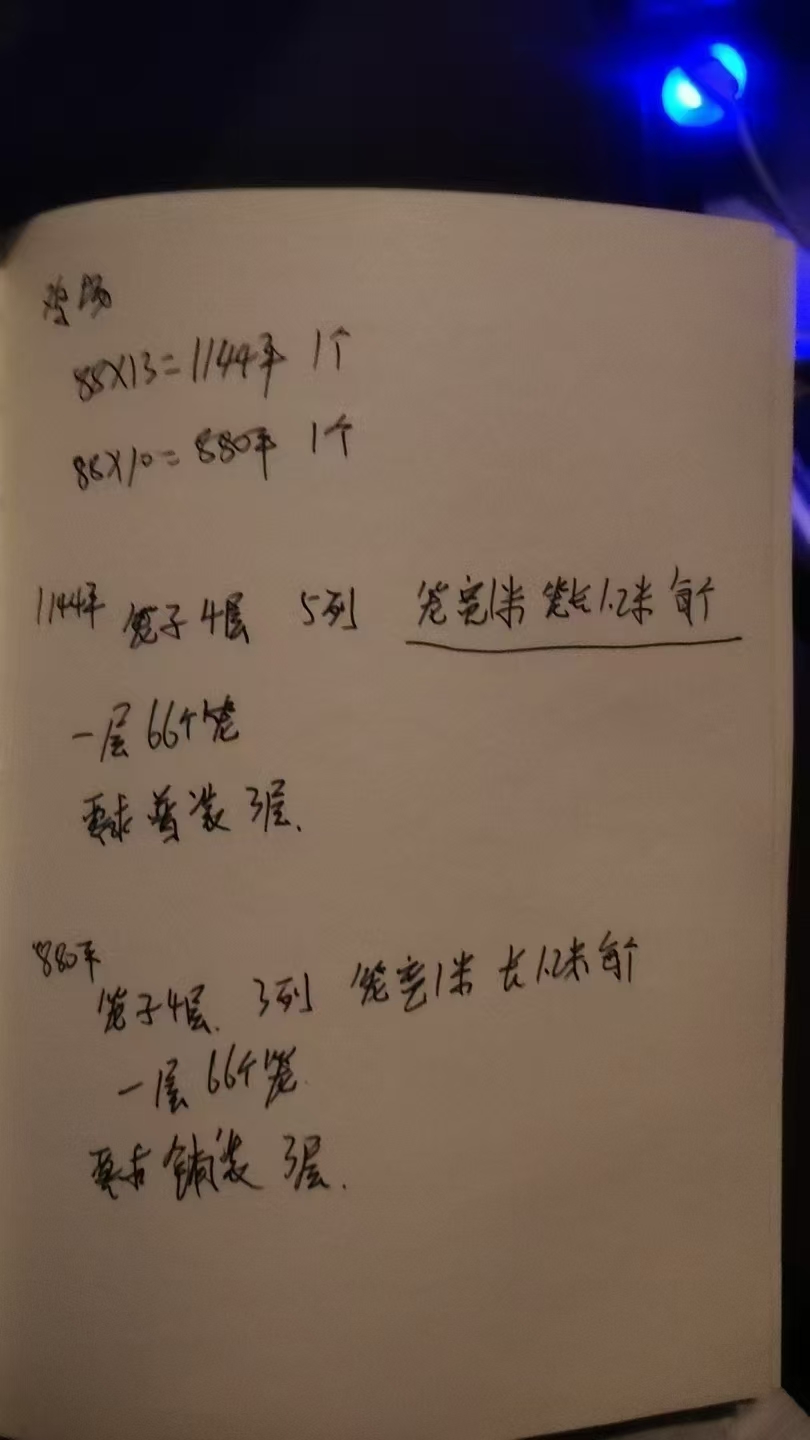 鸡场
88X13=1144平 1个
88X10=880平 1个
1144平 笼子4层 5列 笼宽1米 笼长1.2米 每个
一层66个笼
要求 装 3层.
880平
笼子4层. 3列 笼宽1米 长1.2米 每个
一层66个笼.
要求 铺装 3层.